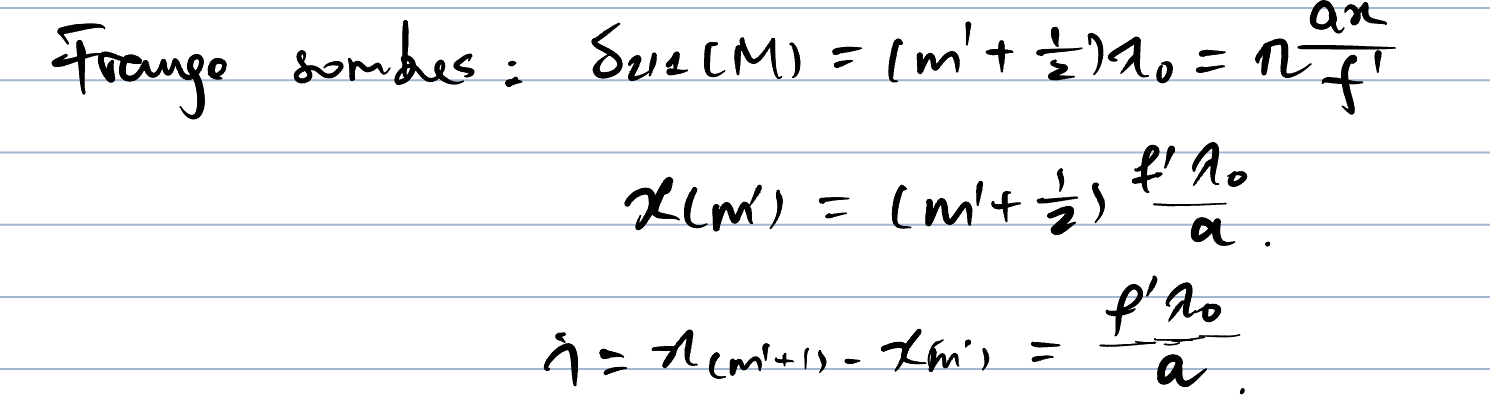 Frange sombres : δ2/1(M) = (m' + 1/2)λ0 = n ax/f'
x(m') = (m' + 1/2) f'λ0/a .
i = x(m'+1) - x(m') = f'λ0/a .